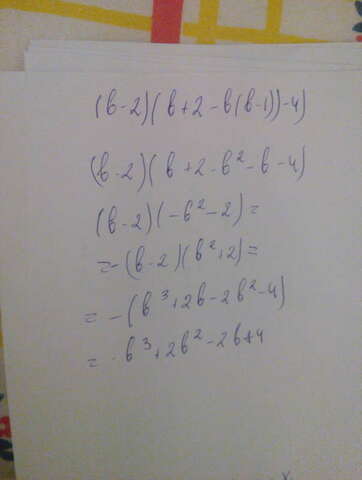 (b-2)(b+2-b(b-1))-4)
(b-2)(b+2-b²-b-4)
(b-2)(-b²-2)=
=-(b-2)(b²+2)=
=-(b³+2b-2b²-4)
=-b³+2b²-2b+4